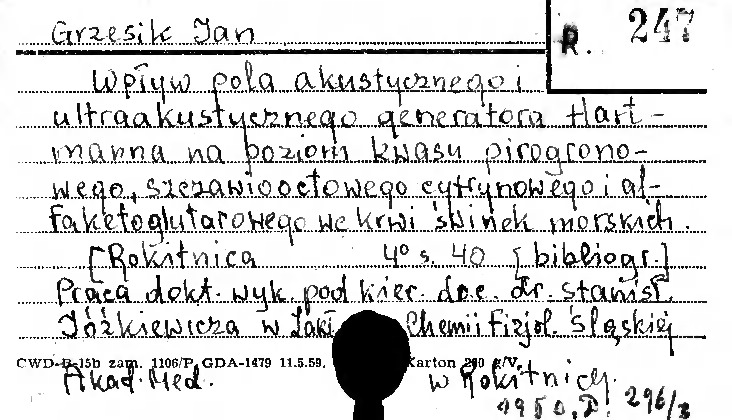 Grzesik Jan
R. 247
Wpływ pola akustycznego i
ultraakustycznego generatora Hart-
manna na poziom kwasu pirogrono-
wego, szczawiooctowego cytrynowego i al-
faketoglutarowego we krwi świnek morskich.
[Rokitnica 4° s. 40 [bibliogr.]
Praca dokt. wyk. pod kier. doc. dr. Stanisł.
Jóżkiewicza w Zakł Chemii Fizjol. Śląskiej
CWD-B-15b zam. 1106/P GDA-1479 11.5.59. Karton 280 g/V
Akad. Med. w Rokitnicy.
296/3